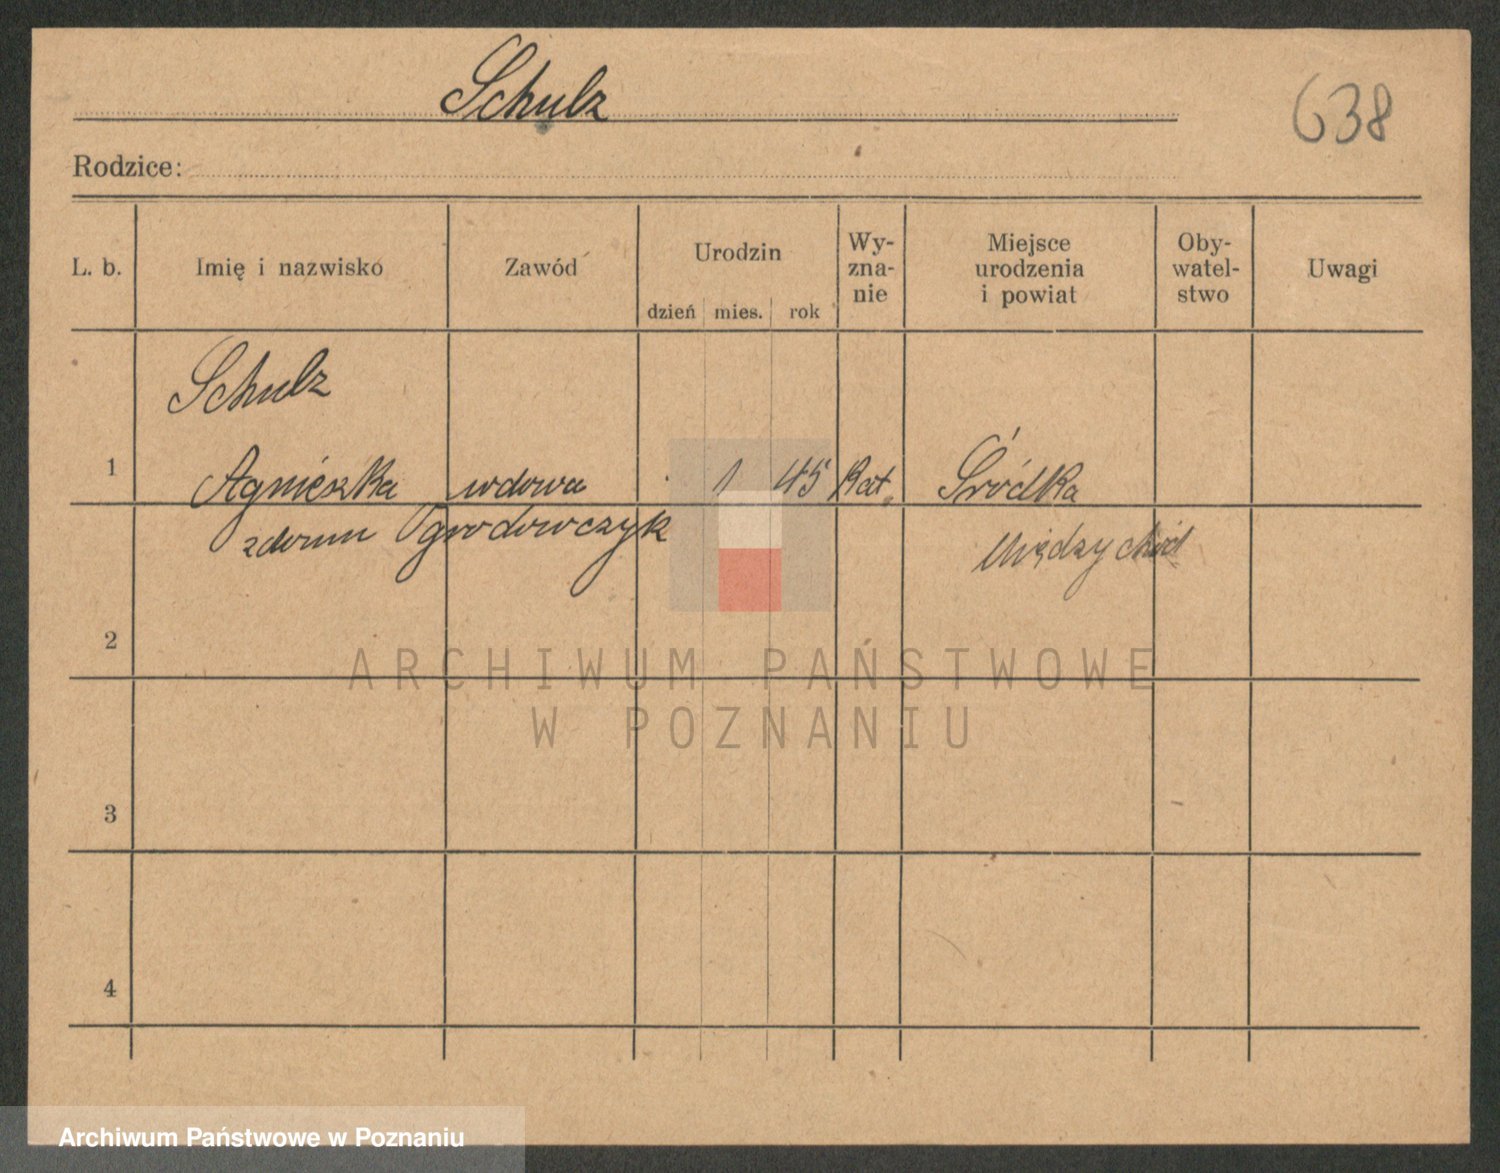 Schulz
638
Rodzice:
L. b. Imię i nazwisko Zawód Urodzin dzień mies. rok Wy-zna-nie Miejsce urodzenia i powiat Oby-watel-stwo Uwagi
Schulz
1 Agnieszka wdowa 1 45 Kat. Śródka
z domu Ogrodowczyk Międzychód
2
ARCHIWUM PAŃSTWOWE
W POZNANIU
3
4
Archiwum Państwowe w Poznaniu